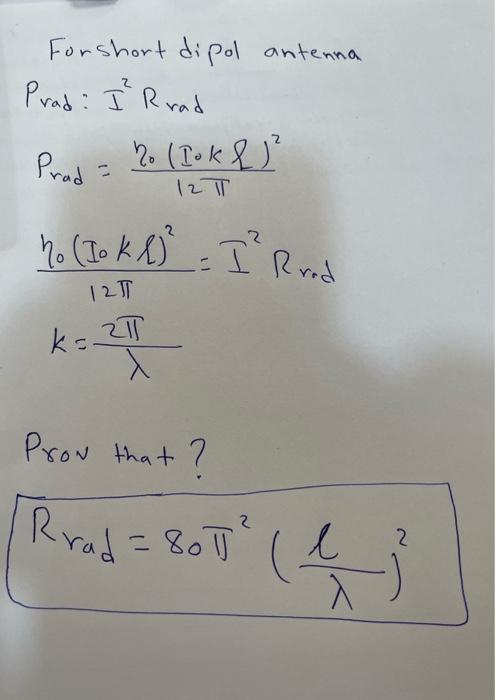 For short dipol antenna
Prad : I² Rrad
Prad = η₀ (I₀ k ℓ)² / 12π
η₀ (I₀ k ℓ)² / 12π = I² Rrad
k = 2π / λ
Prov that ?
Rrad = 80π² (ℓ / λ)²